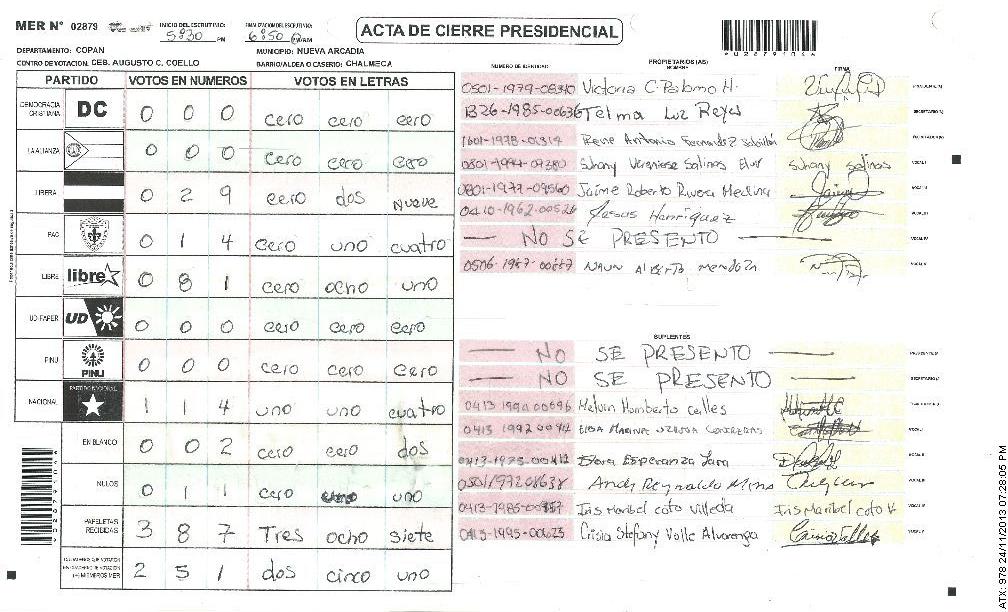 MER Nº 02879 INICIO DEL ESCRUTINIO: 5:30 PM FINALIZACION DEL ESCRUTINIO: 6:50 AM
ACTA DE CIERRE PRESIDENCIAL
DEPARTAMENTO: COPAN MUNICIPIO: NUEVA ARCADIA
CENTRO DE VOTACION: CEB. AUGUSTO C. COELLO BARRIO/ALDEA O CASERIO: CHALMECA
PARTIDO VOTOS EN NUMEROS VOTOS EN LETRAS
DEMOCRACIA CRISTIANA DC 0 0 0 cero cero cero
LA ALIANZA 0 0 0 cero cero cero
LIBERAL 0 2 9 cero dos nueve
PAC 0 1 4 cero uno cuatro
LIBRE libre 0 8 1 cero ocho uno
UD-FAPER UD 0 0 0 cero cero cero
PINU PINU 0 0 0 cero cero cero
NACIONAL PARTIDO NACIONAL 1 1 4 uno uno cuatro
EN BLANCO 0 0 2 cero cero dos
NULOS 0 1 1 cero uno uno
PAPELETAS RECIBIDAS 3 8 7 Tres ocho siete
(+) MIEMBROS MER 2 5 1 dos cinco uno
PROPIETARIOS (AS)
NUMERO DE IDENTIDAD NOMBRE FIRMA
0501-1979-08340 Victoria C. Palomo H. PRESIDENTE (A)
1326-1985-00636 Telma Luz Reyes SECRETARIO (A)
1601-1978-01314 Rene Antonio Fernandez
0801-1994-07380 Suhany Salinas Suhany Salinas VOCAL I
0801-1977-09560 Jaime Roberto Rivera Medina VOCAL II
0410-1962-00526 Jesus Henriquez VOCAL III
NO SE PRESENTO VOCAL IV
0506-1987-00687 NAUN Alberto Mendoza VOCAL V
SUPLENTES
NO SE PRESENTO PRESIDENTE (A)
NO SE PRESENTO SECRETARIO (A)
0413 1990 00696 Melvin Humberto celles
0413 1992 VOCAL I
0413-1975-00412 Esperanza Lara VOCAL II
0501197208638 Andy Reynaldo VOCAL III
0413-1985- Iris Maribel coto Villeda Iris Maribel coto V. VOCAL IV
0413-1995-00623 Crisia Stefany Valle Alvarenga VOCAL V
ATX: 978 24/11/2013 07:28:05 PM